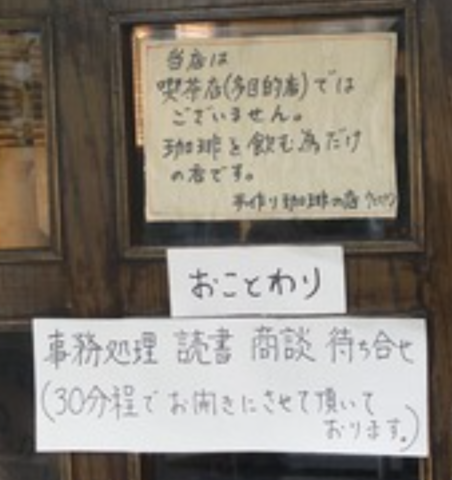 当店は
喫茶店(多目的店)では
ございません。
珈琲を飲む為だけ
の店です。
手作り珈琲の店
おことわり
事務処理 読書 商談 待ち合せ
(30分程でお開きにさせて頂いて
おります。)